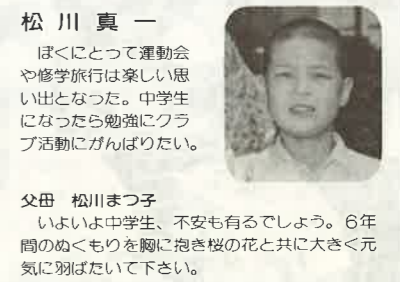 松川真一
ぼくにとって運動会
や修学旅行は楽しい思
い出となった。中学生
になったら勉強にクラ
ブ活動にがんばりたい。
父母　松川まつ子
いよいよ中学生、不安も有るでしょう。６年
間のぬくもりを胸に抱き桜の花と共に大きく元
気に羽ばたいて下さい。